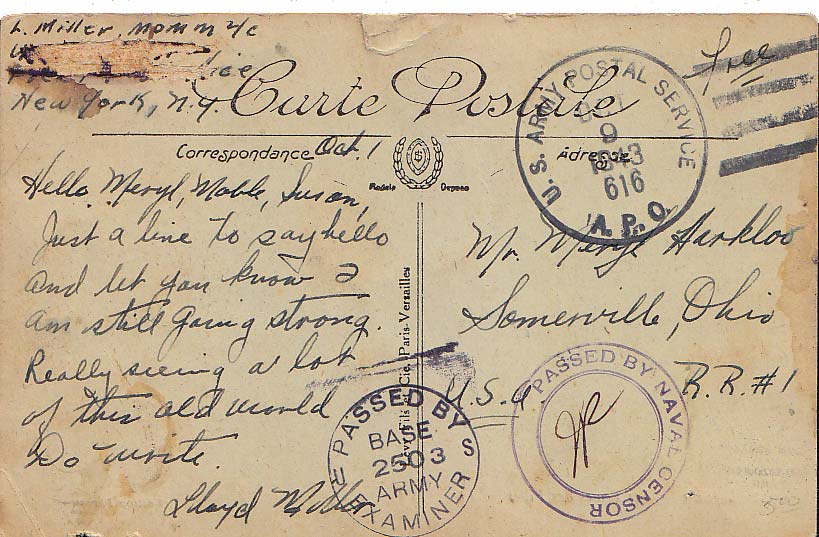 L. Miller. MoMM 2/c
New York, N.Y.
Carte Postale
Free
U.S. ARMY POSTAL SERVICE
OCT
9
1943
616
A.P.O.
Correspondance
Oct. 1
Adresse
Modele Depose
Hello Meryl, Noble, Susan,
Just a line to say hello
and let you know I
am still going strong.
Really seeing a lot
of this old world
Do write.
Lloyd Miller
Fils & Cie, Paris-Versailles
Mr. Meryl Harkloo
Somerville, Ohio
R.R. #1
U.S.A
PASSED BY
BASE
2503
ARMY
EXAMINER
PASSED BY NAVAL CENSOR